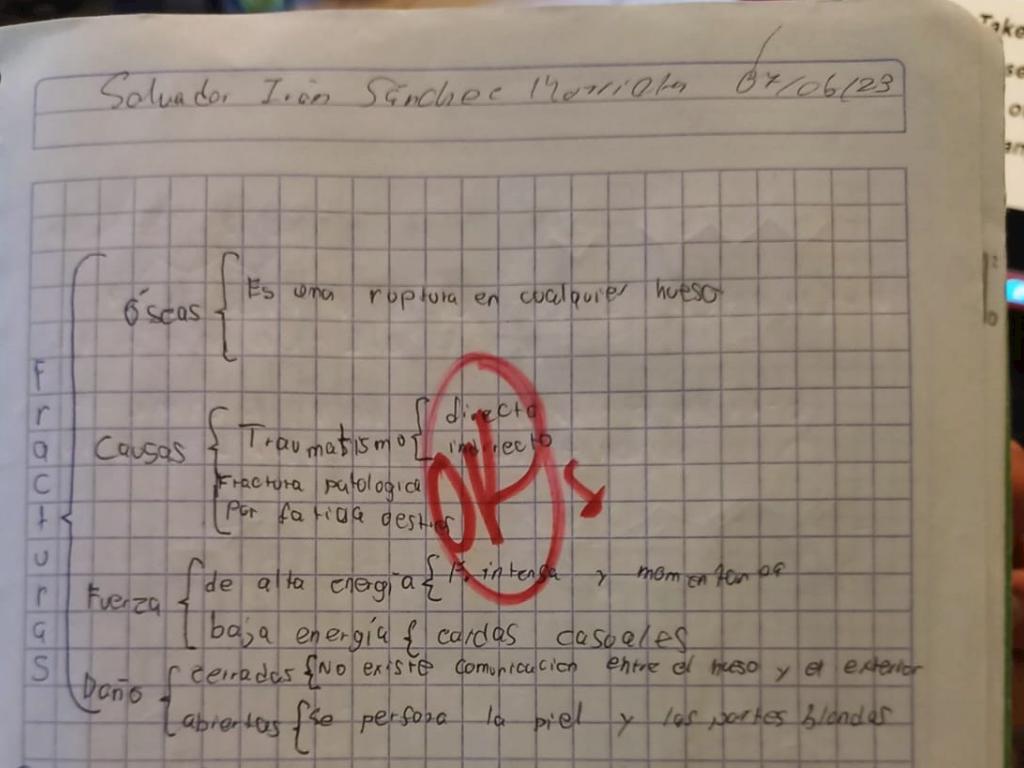 Salvador Irán Sánchez 07/06/23
Fracturas
Óseas { Es una ruptura en cualquier hueso
Causas { Traumatismo { directo
indirecto
Fractura patologica
Por fatiga
OK
Fuerza { de alta energía { F. intensa y momentanea
baja energía { caidas casuales
Daño { cerradas { No existe comunicacion entre el hueso y el exterior
abiertas { se perfora la piel y las partes blandas
Take